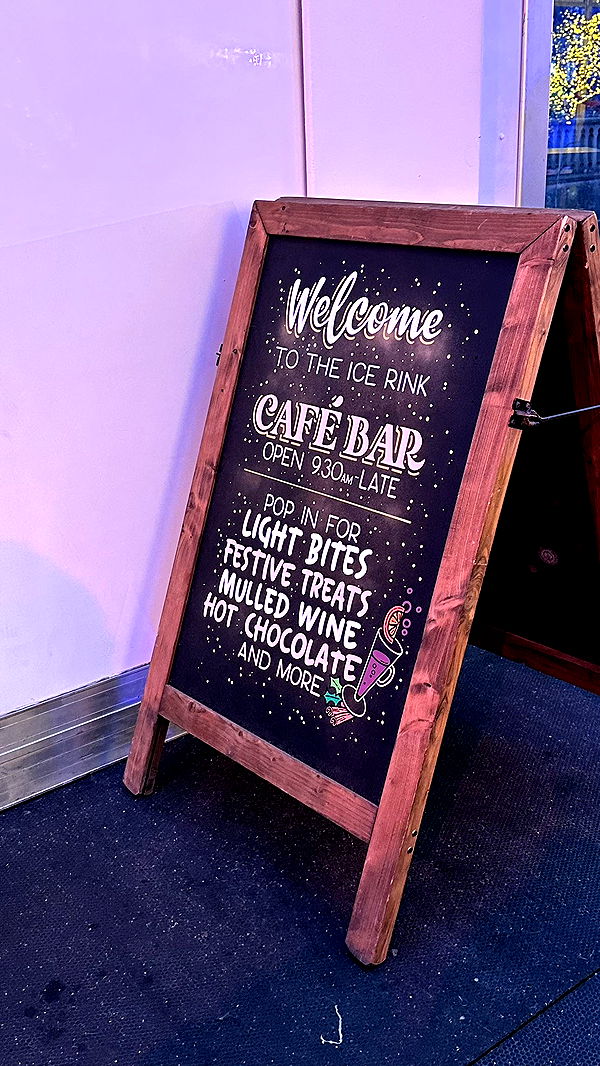 Welcome
TO THE ICE RINK
CAFÉ BAR
OPEN 9.30AM-LATE
POP IN FOR
LIGHT BITES
FESTIVE TREATS
MULLED WINE
HOT CHOCOLATE
AND MORE